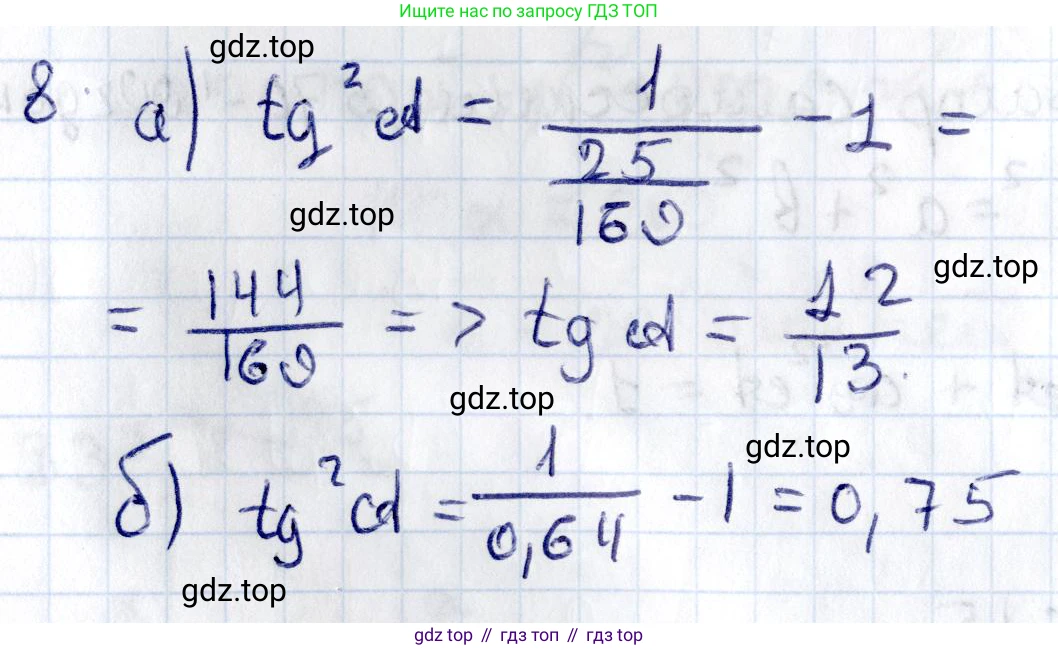 Ищите нас по запросу ГДЗ ТОП
gdz.top
8. а) tg²α = 1/(25/169) - 1 =
gdz.top
gdz.top
= 144/169 => tg α = 12/13.
gdz.top
gdz.top
б) tg²α = 1/0,64 - 1 = 0,75
gdz.top
gdz top // гдз топ // гдз top